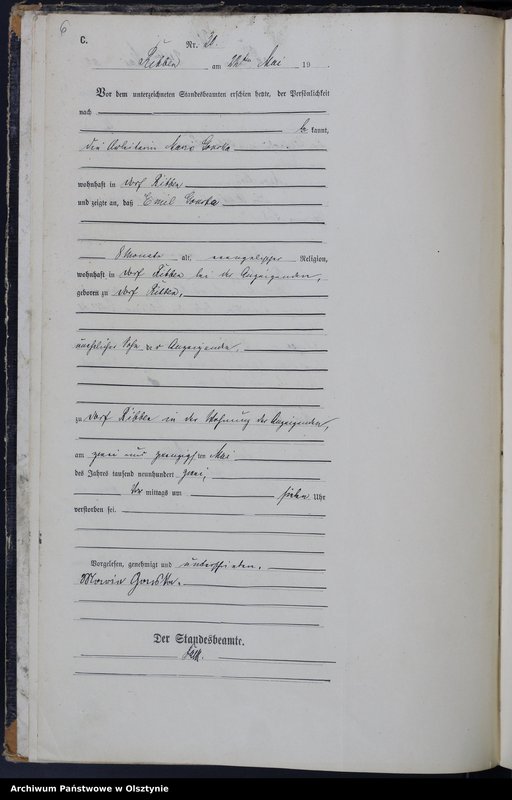 6
C.
Nr. 21.
Ribben am 22ten Mai 19
Vor dem unterzeichneten Standesbeamten erschien heute, der Persönlichkeit
nach
be kannt,
die Arbeiterin Marie
wohnhaft in Dorf Ribben
und zeigte an, daß Emil
8 Monate alt, evangelischer Religion,
wohnhaft in Dorf Ribben bei der Anzeigenden,
geboren zu Dorf Ribben,
unehelicher Sohn der Anzeigenden,
zu Dorf Ribben in der Wohnung der Anzeigenden,
am zwei und zwanzigsten Mai
des Jahres tausend neunhundert zwei,
Vor mittags um sieben Uhr
verstorben sei.
Vorgelesen, genehmigt und unterschrieben.
Maria
Der Standesbeamte.
Archiwum Państwowe w Olsztynie